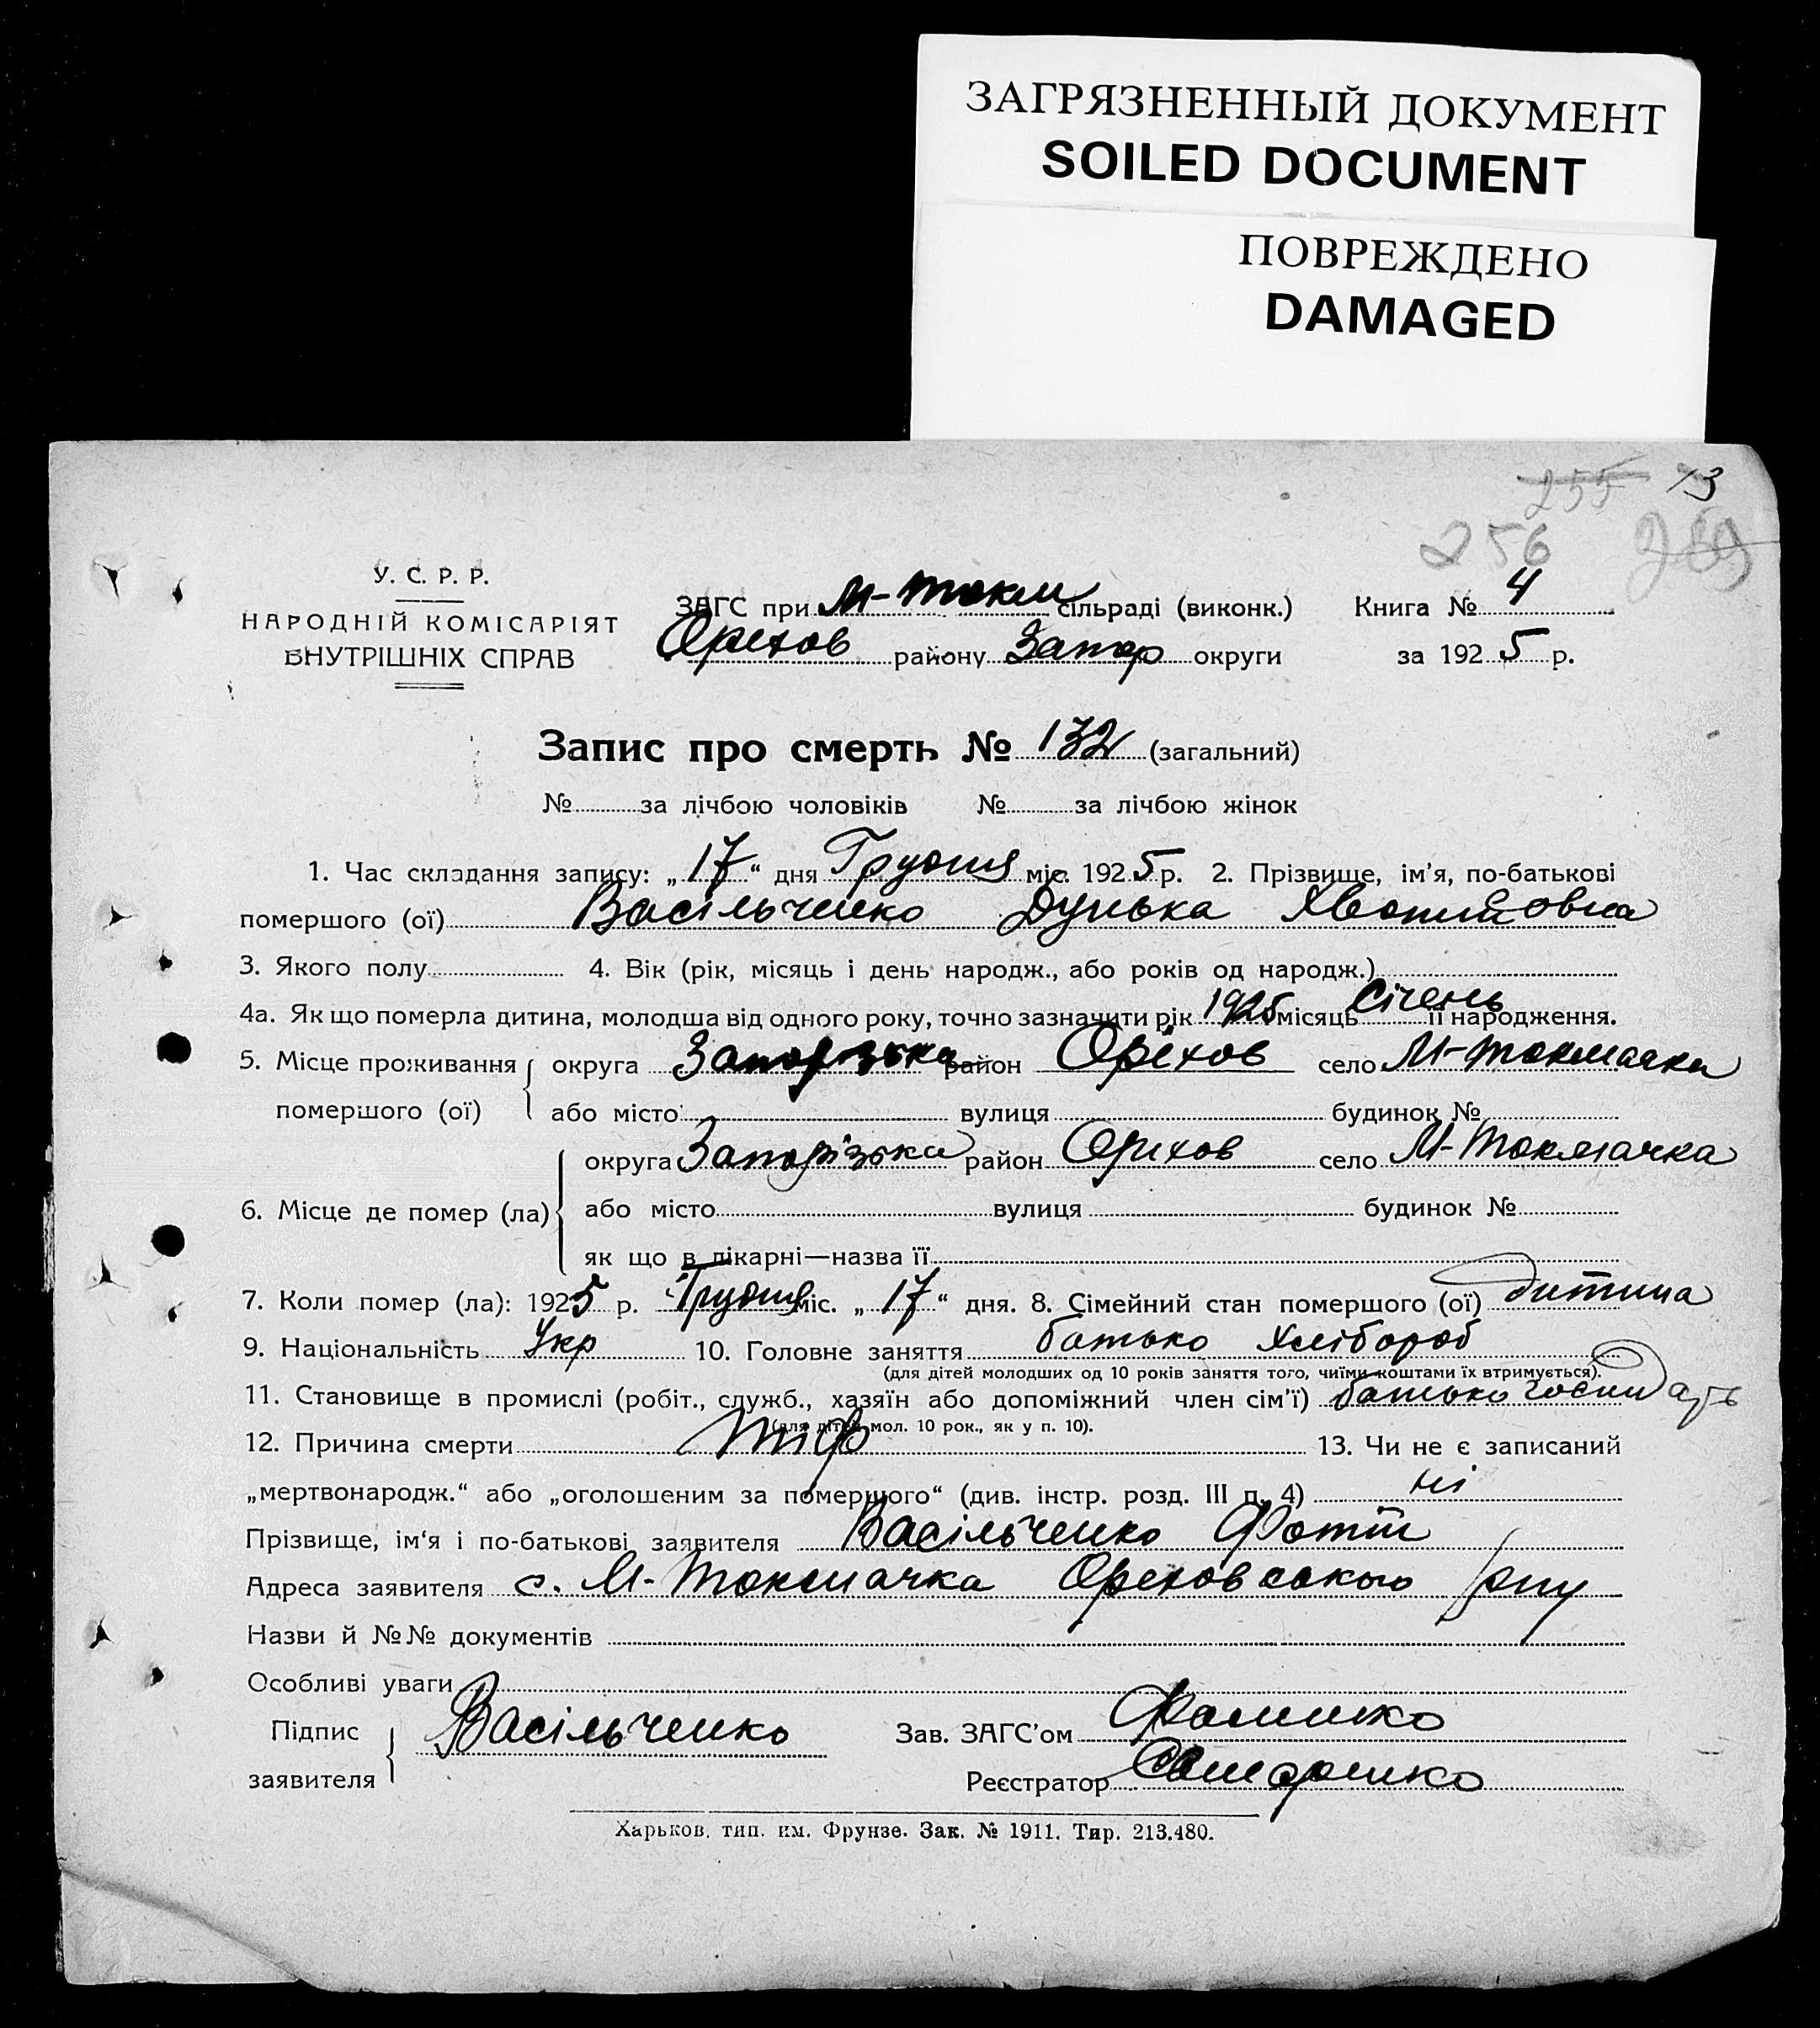 ЗАГРЯЗНЕННЫЙ ДОКУМЕНТ
SOILED DOCUMENT
ПОВРЕЖДЕНО
DAMAGED
255 13
256 269
У. С. Р. Р.
НАРОДНІЙ КОМІСАРІЯТ
ВНУТРІШНІХ СПРАВ
ЗАГС при М-Токм сільраді (виконк.) Книга № 4
Орехов району Запор округи за 1925 р.
Запис про смерть № 132 (загальний)
№ за лічбою чоловіків № за лічбою жінок
1. Час складання запису: „17“ дня Грудня міс. 1925 р. 2. Прізвище, ім'я, по-батькові
помершого (ої) Васільченко Дунька Хвотіовна
3. Якого полу 4. Вік (рік, місяць і день народж., або років од народж.)
4а. Як що померла дитина, молодша від одного року, точно зазначити рік 1925 місяць Січень її народження.
5. Місце проживання округа Запорізька район Оріхов село М-Токмачка
помершого (ої) або місто вулиця будинок №
округа Запорізька район Оріхов село М-Токмачка
6. Місце де помер (ла) або місто вулиця будинок №
як що в лікарні—назва її
7. Коли помер (ла): 1925 р. Грудня міс. „17“ дня. 8. Сімейний стан помершого (ої) дитина
9. Національність Укр 10. Головне заняття батько хлібороб
(для дітей молодших од 10 років заняття того, чиїми коштами їх втримується).
11. Становище в промислі (робіт., служб., хазяїн або допоміжний член сім'ї) батько господарь
(для дітей мол. 10 рок., як у п. 10).
12. Причина смерти тиф 13. Чи не є записаний
„мертвонародж.“ або „оголошеним за помершого“ (див. інстр. розд. III п. 4) ні
Прізвище, ім'я і по-батькові заявителя Васільченко Фотій
Адреса заявителя с. М-Токмачка Ореховського р-ну
Назви й №№ документів
Особливі уваги
Підпис заявителя Васільченко Зав. ЗАГС'ом Фоменко
Реєстратор
Харьков, тип. им. Фрунзе. Зак. № 1911. Тир. 213.480.